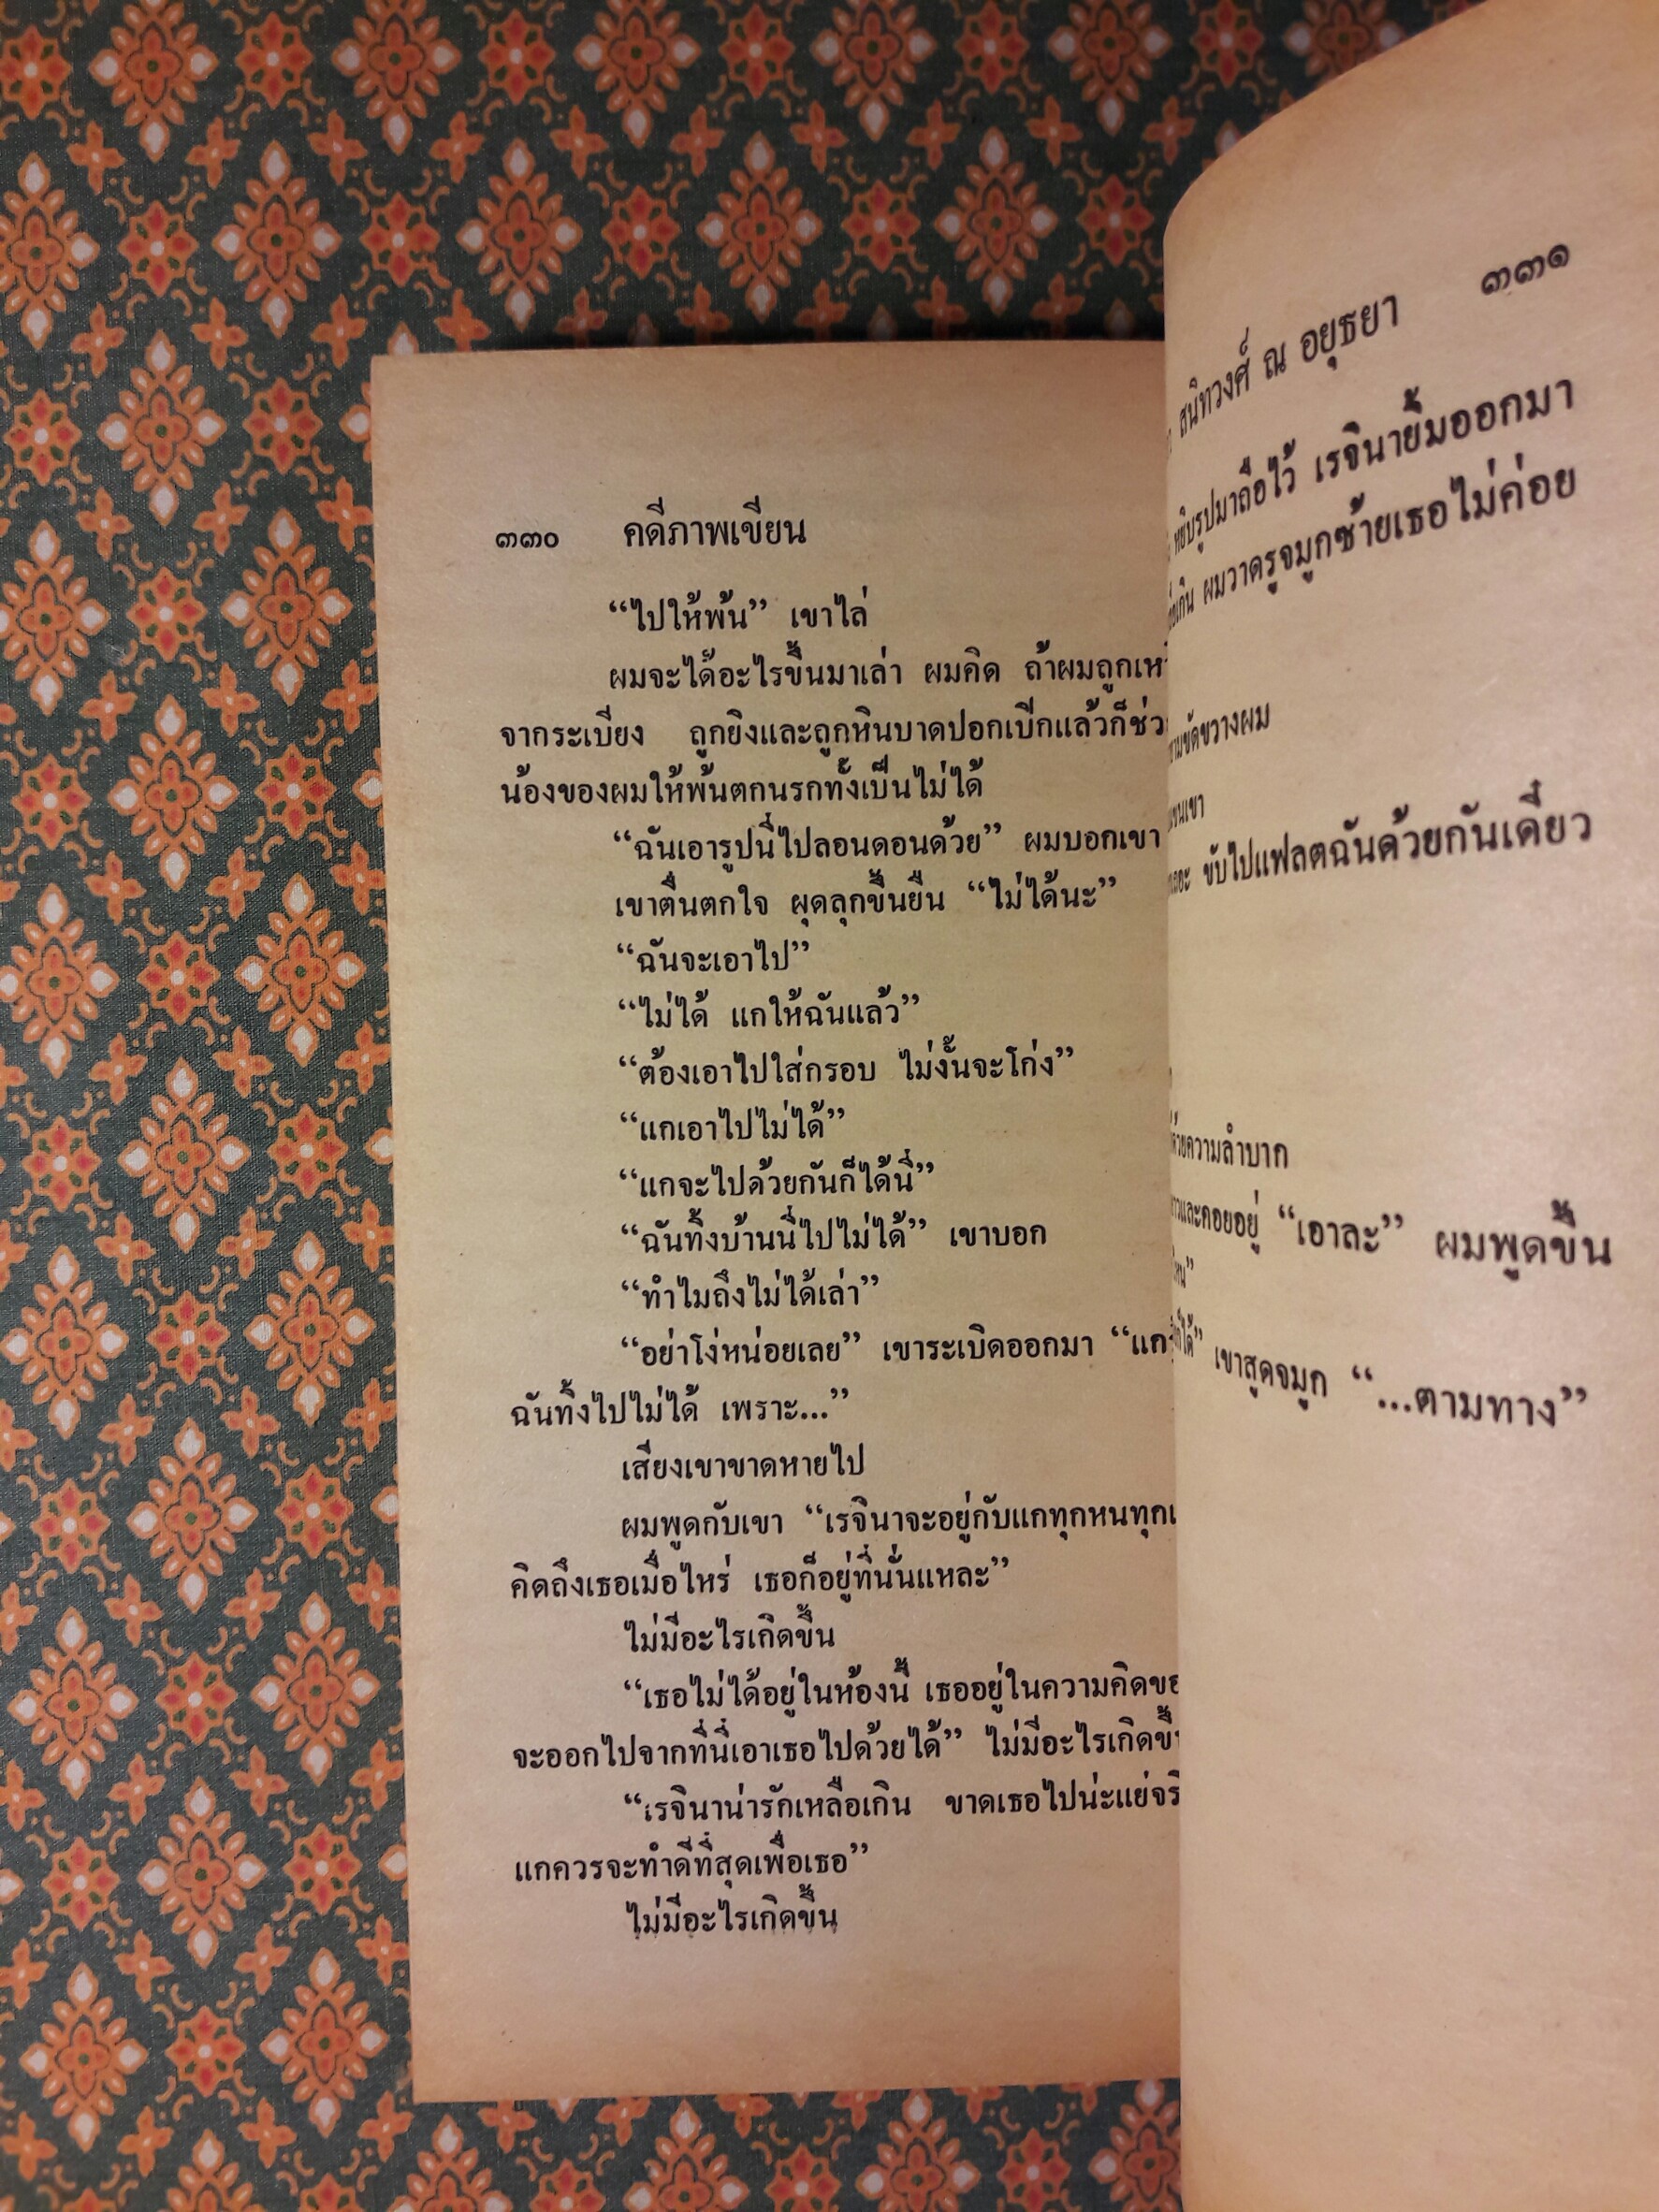 ๓๓๐ คดีภาพเขียน
“ไปให้พ้น” เขาไล่
ผมจะได้อะไรขึ้นมาเล่า ผมคิด ถ้าผมถูกเห
จากระเบียง ถูกยิงและถูกหินบาดปอกเปิกแล้วก็ช่ว
น้องของผมให้พ้นตกนรกทั้งเป็นไม่ได้
“ฉันเอารูปนี้ไปลอนดอนด้วย” ผมบอกเขา
เขาตื่นตกใจ ผุดลุกขึ้นยืน “ไม่ได้นะ”
“ฉันจะเอาไป”
“ไม่ได้ แกให้ฉันแล้ว”
“ต้องเอาไปใส่กรอบ ไม่งั้นจะโก่ง”
“แกเอาไปไม่ได้”
“แกจะไปด้วยกันก็ได้นี่”
“ฉันทิ้งบ้านนี้ไปไม่ได้” เขาบอก
“ทำไมถึงไม่ได้เล่า”
“อย่าโง่หน่อยเลย” เขาระเบิดออกมา “แก
ฉันทิ้งไปไม่ได้ เพราะ...”
เสียงเขาขาดหายไป
ผมพูดกับเขา “เรจินาจะอยู่กับแกทุกหนทุกแ
คิดถึงเธอเมื่อไหร่ เธอก็อยู่ที่นั่นแหละ”
ไม่มีอะไรเกิดขึ้น
“เธอไม่ได้อยู่ในห้องนี้ เธออยู่ในความคิดขอ
จะออกไปจากที่นี่เอาเธอไปด้วยได้” ไม่มีอะไรเกิดขึ้น
“เรจินาน่ารักเหลือเกิน ขาดเธอไปน่ะแย่จริ
แกควรจะทำดีที่สุดเพื่อเธอ”
ไม่มีอะไรเกิดขึ้น
สนิทวงศ์ ณ อยุธยา ๓๓๑
หยิบรูปมาถือไว้ เรจินายิ้มออกมา
ผมวาดรูจมูกซ้ายเธอไม่ค่อย
ขัดขวางผม
แทนเขา
ขับไปแฟลตฉันด้วยกันเดี๋ยว
ด้วยความลำบาก
และคอยอยู่ “เอาละ” ผมพูดขึ้น
เขาสูดจมูก “...ตามทาง”